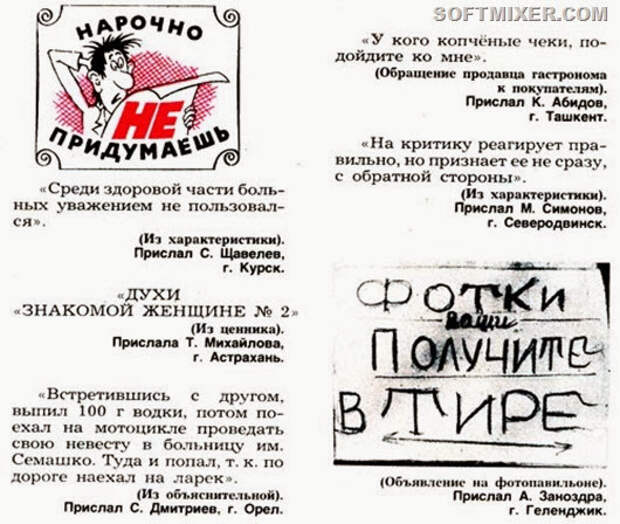 SOFTMIXER.COM
НАРОЧНО
НЕ
ПРИДУМАЕШЬ
«Среди здоровой части боль-
ных уважением не пользовал-
ся».
(Из характеристики).
Прислал С. Щавелев,
г. Курск.
«ДУХИ
«ЗНАКОМОЙ ЖЕНЩИНЕ № 2»
(Из ценника).
Прислала Т. Михайлова,
г. Астрахань.
«Встретившись с другом,
выпил 100 г водки, потом по-
ехал на мотоцикле проведать
свою невесту в больницу им.
Семашко. Туда и попал, т. к. по
дороге наехал на ларек».
(Из объяснительной).
Прислал С. Дмитриев, г. Орел.
«У кого копчёные чеки, по-
дойдите ко мне».
(Обращение продавца гастронома
к покупателям).
Прислал К. Абидов,
г. Ташкент.
«На критику реагирует пра-
вильно, но признает ее не сразу,
с обратной стороны».
(Из характеристики).
Прислал М. Симонов,
г. Северодвинск.
ФОТКИ
ваши
ПОЛУЧИТЕ
В ТИРЕ
(Объявление на фотопавильоне).
Прислал А. Заноздра,
г. Геленджик.